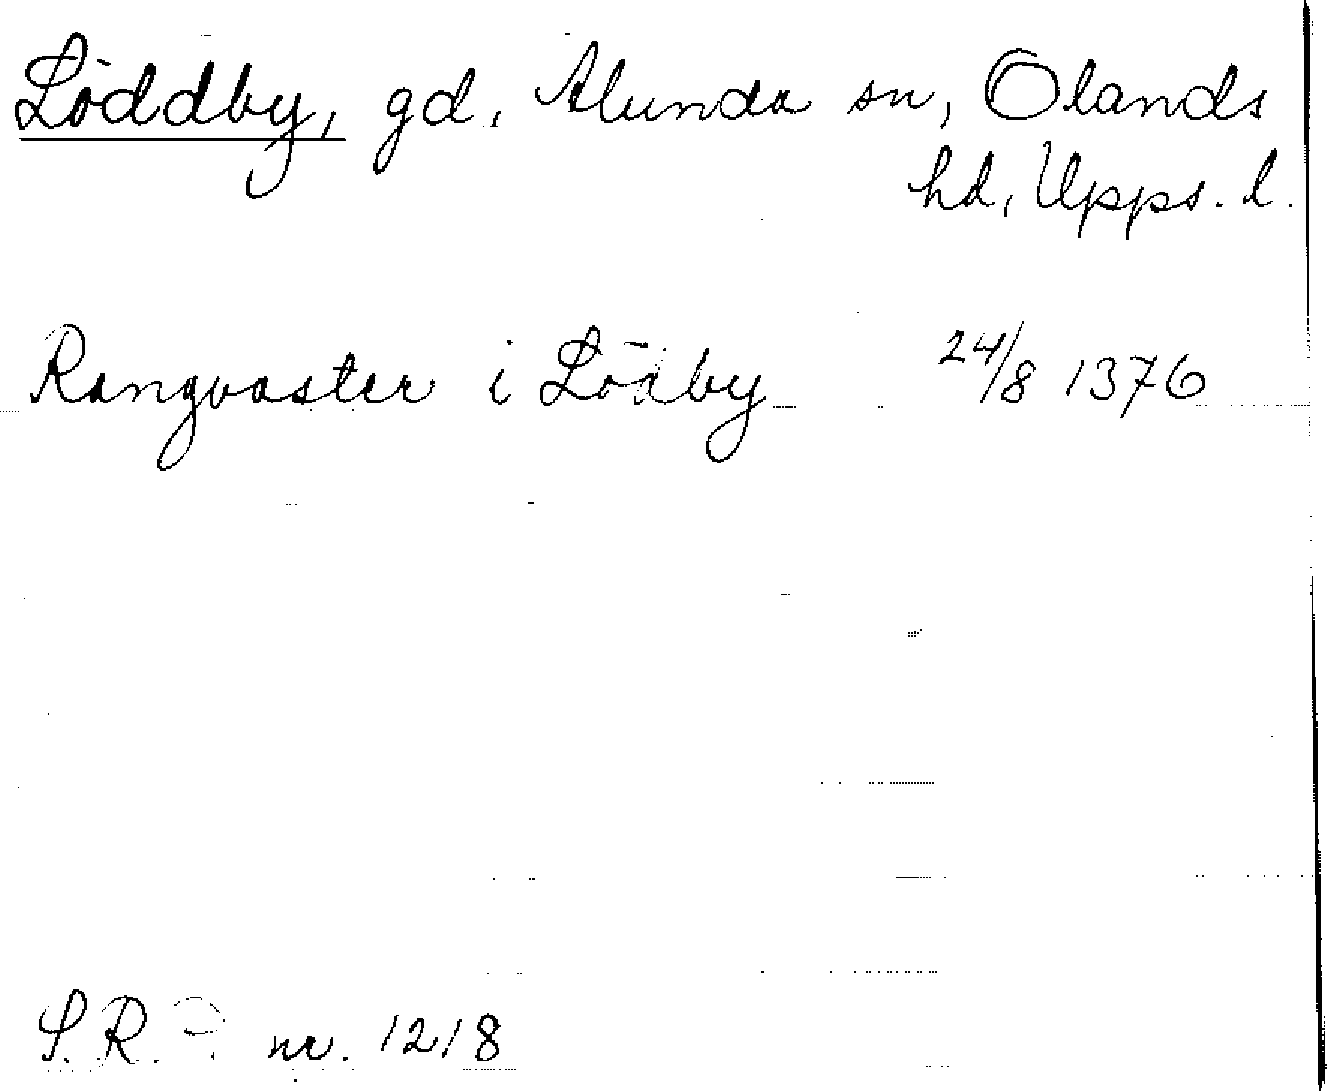 Löddby, gd, Alunda sn, Olands
hd, Upps. l.
Rangvaster i Lödby 24/8 1376
S.R.P. nr. 1218